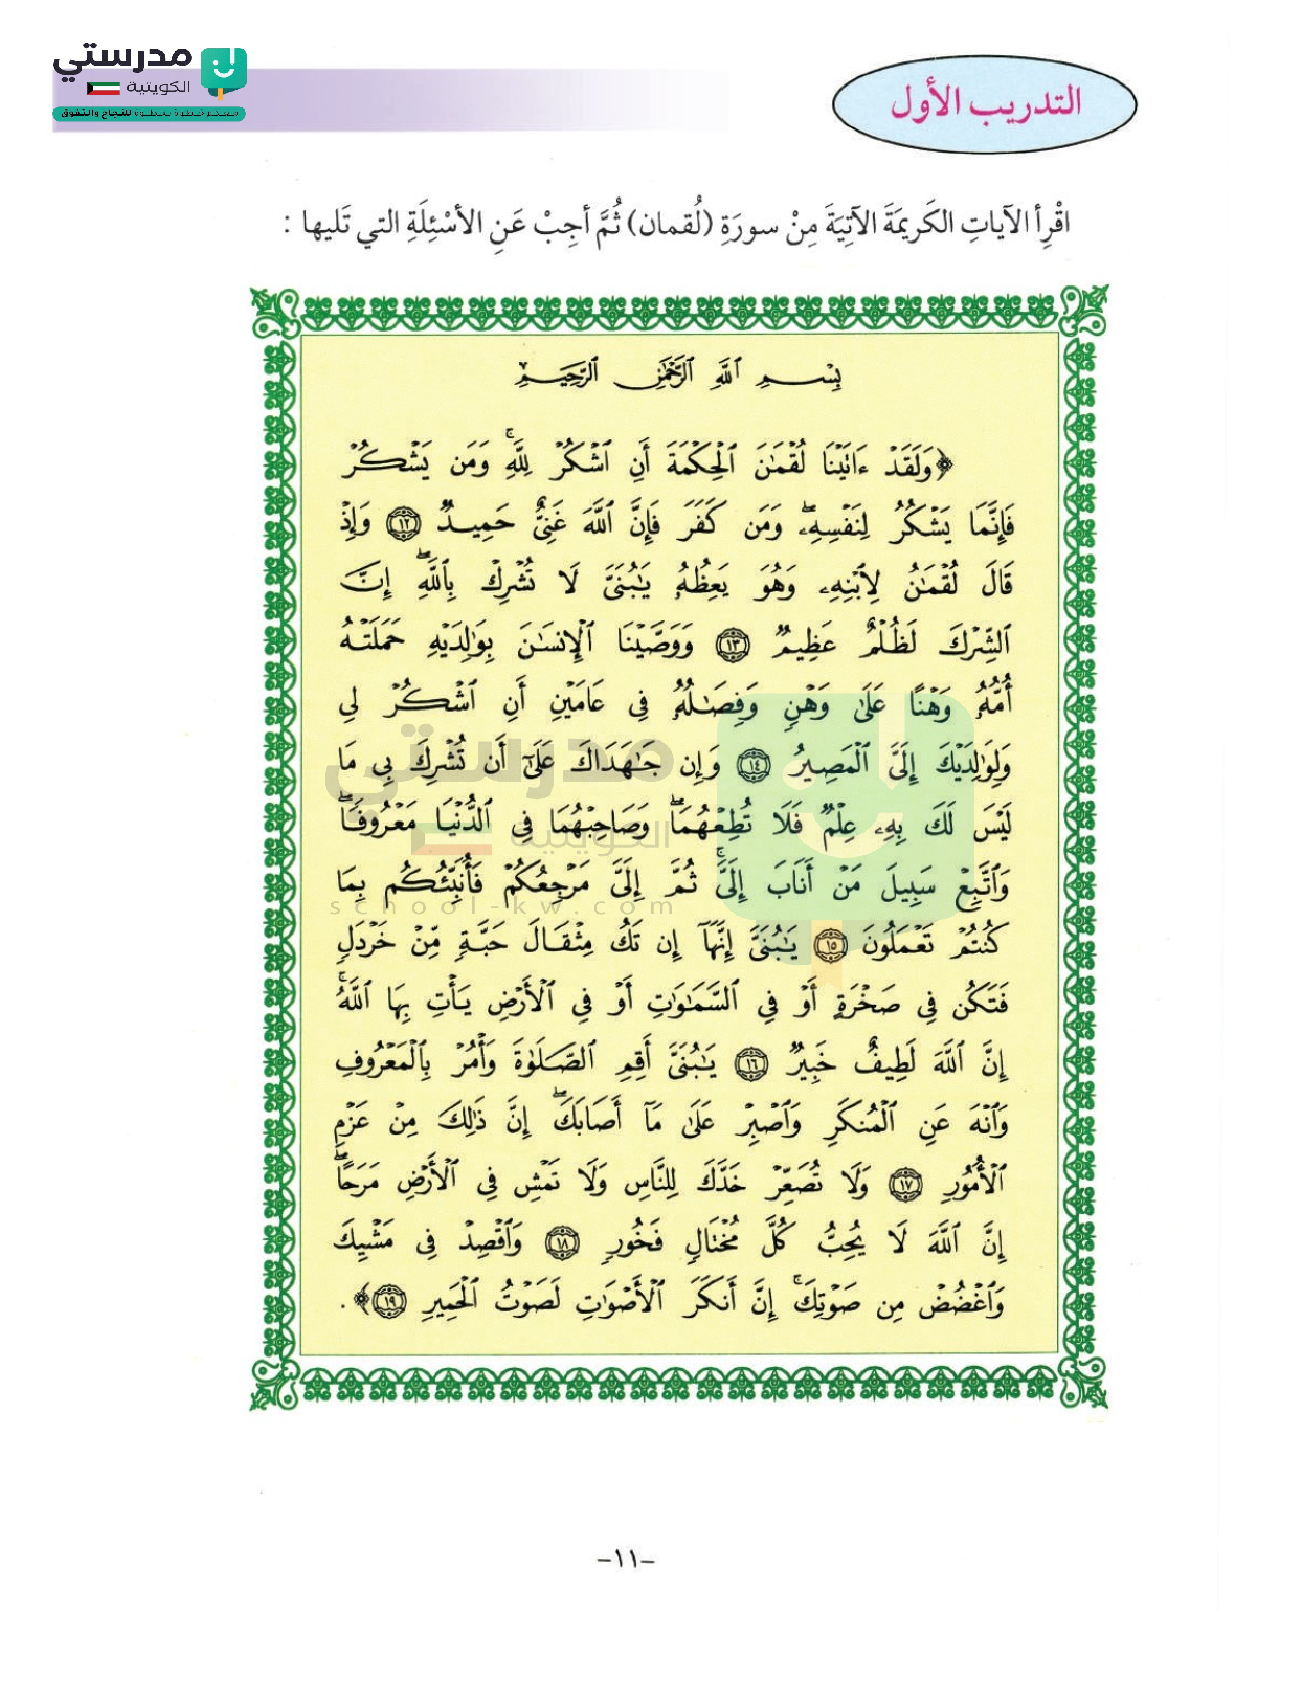 مدرستي
الكويتية
التدريب الأول
اقْرِأ الآياتِ الكَرِيمَةَ الآتِيَةَ مِنْ سورَةِ (لُقمان) ثُمَّ أجِبْ عَنِ الأسْئِلَةِ التي تَليها :
بِسْمِ ٱللَّهِ ٱلرَّحْمَٰنِ ٱلرَّحِيمِ
﴿وَلَقَدْ ءَاتَيْنَا لُقْمَٰنَ ٱلْحِكْمَةَ أَنِ ٱشْكُرْ لِلَّهِۚ وَمَن يَشْكُرْ
فَإِنَّمَا يَشْكُرُ لِنَفْسِهِۦۖ وَمَن كَفَرَ فَإِنَّ ٱللَّهَ غَنِىٌّ حَمِيدٌ ١٢ وَإِذْ
قَالَ لُقْمَٰنُ لِٱبْنِهِۦ وَهُوَ يَعِظُهُۥ يَٰبُنَىَّ لَا تُشْرِكْ بِٱللَّهِۖ إِنَّ
ٱلشِّرْكَ لَظُلْمٌ عَظِيمٌ ١٣ وَوَصَّيْنَا ٱلْإِنسَٰنَ بِوَٰلِدَيْهِ حَمَلَتْهُ
أُمُّهُۥ وَهْنًا عَلَىٰ وَهْنٍ وَفِصَٰلُهُۥ فِى عَامَيْنِ أَنِ ٱشْكُرْ لِى
وَلِوَٰلِدَيْكَ إِلَىَّ ٱلْمَصِيرُ ١٤ وَإِن جَٰهَدَاكَ عَلَىٰٓ أَن تُشْرِكَ بِى مَا
لَيْسَ لَكَ بِهِۦ عِلْمٌ فَلَا تُطِعْهُمَاۖ وَصَاحِبْهُمَا فِى ٱلدُّنْيَا مَعْرُوفًاۖ
وَٱتَّبِعْ سَبِيلَ مَنْ أَنَابَ إِلَىَّۚ ثُمَّ إِلَىَّ مَرْجِعُكُمْ فَأُنَبِّئُكُم بِمَا
كُنتُمْ تَعْمَلُونَ ١٥ يَٰبُنَىَّ إِنَّهَآ إِن تَكُ مِثْقَالَ حَبَّةٍ مِّنْ خَرْدَلٍ
فَتَكُن فِى صَخْرَةٍ أَوْ فِى ٱلسَّمَٰوَٰتِ أَوْ فِى ٱلْأَرْضِ يَأْتِ بِهَا ٱللَّهُۚ
إِنَّ ٱللَّهَ لَطِيفٌ خَبِيرٌ ١٦ يَٰبُنَىَّ أَقِمِ ٱلصَّلَوٰةَ وَأْمُرْ بِٱلْمَعْرُوفِ
وَٱنْهَ عَنِ ٱلْمُنكَرِ وَٱصْبِرْ عَلَىٰ مَآ أَصَابَكَۖ إِنَّ ذَٰلِكَ مِنْ عَزْمِ
ٱلْأُمُورِ ١٧ وَلَا تُصَعِّرْ خَدَّكَ لِلنَّاسِ وَلَا تَمْشِ فِى ٱلْأَرْضِ مَرَحًاۖ
إِنَّ ٱللَّهَ لَا يُحِبُّ كُلَّ مُخْتَالٍ فَخُورٍ ١٨ وَٱقْصِدْ فِى مَشْيِكَ
وَٱغْضُضْ مِن صَوْتِكَۚ إِنَّ أَنكَرَ ٱلْأَصْوَٰتِ لَصَوْتُ ٱلْحَمِيرِ ١٩﴾ .
مدرستي
الكويتية
school-kw.com
-١١-